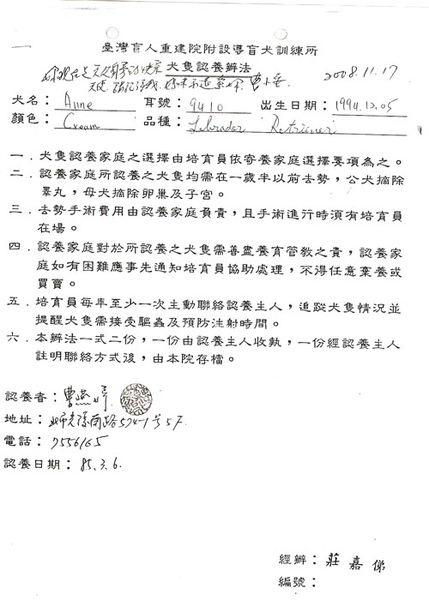 臺灣盲人重建院附設導盲犬訓練所
犬隻認養辦法
2008.11.17
犬名：Anne 耳號：9410 出生日期：1994.12.05
顏色：Cream 品種：Labrador Retriever
一．犬隻認養家庭之選擇由培育員依寄養家庭選擇要項為之。
二．認養家庭所認養之犬隻均需在一歲半以前去勢，公犬摘除
睪丸，母犬摘除卵巢及子宮。
三．去勢手術費用由認養家庭負責，且手術進行時須有培育員
在場。
四．認養家庭對於所認養之犬隻需善盡養育管教之責，認養家
庭如有困難應事先通知培育員協助處理，不得任意棄養或
買賣。
五．培育員每年至少一次主動聯絡認養主人，追蹤犬隻情況並
提醒犬隻需接受驅蟲及預防注射時間。
六．本辦法一式二份，一份由認養主人收執，一份經認養主人
註明聯絡方式後，由本院存檔。
認養者：
地址：
電話：7556165
認養日期：85.3.6.
經辦：莊嘉
編號：